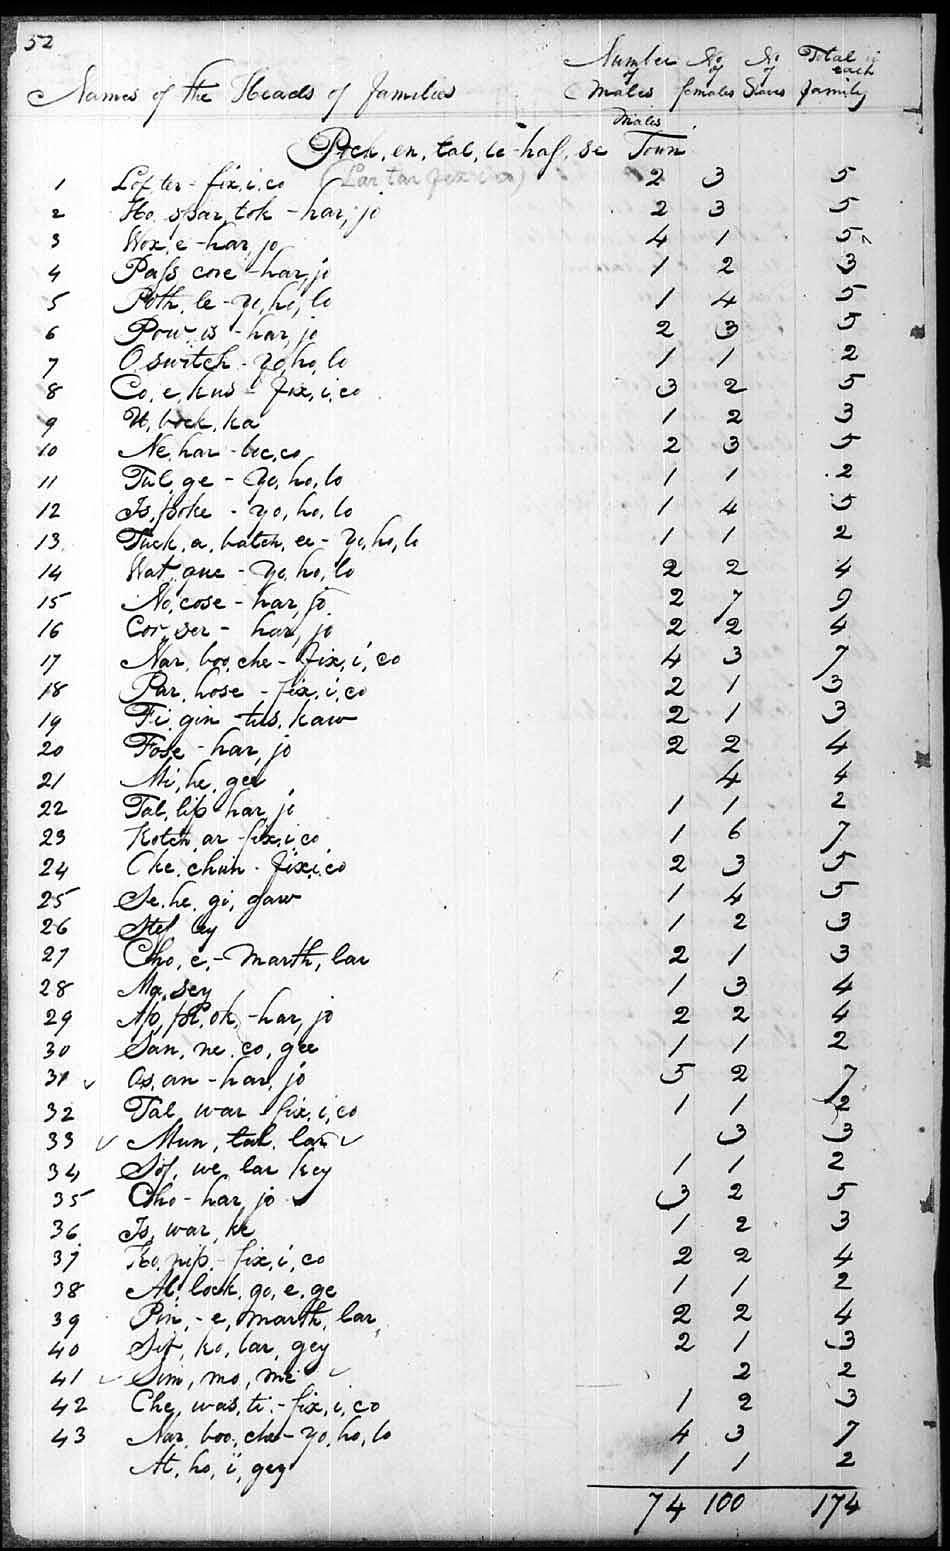 52
Names of the Heads of Families Number of Males No of females No of Slaves Total in each family
Males
Town
1 Lof, ter - fix, i, co (Lar tar fix i co) 2 3 5
2 Ho, spar, tok - har, jo 2 3 5
3 Wox, e - har, jo 4 1 5
4 Pass cove - har, jo 1 2 3
5 Poth, le - yo, ho, lo 1 4 5
6 Pow, is - har, jo 2 3 5
7 O switch - yo, ho, lo 1 1 2
8 Co, e, kus - fix, i, co 3 2 5
9 U, bock, ka 1 2 3
10 Ne, har - loc, co 2 3 5
11 Tul, ge - Yo, ho, lo 1 1 2
12 Is, poke - yo, ho, lo 1 4 5
13 Tuck, a, batch, ee - Yo, ho, lo 1 1 2
14 Wat, que - Yo, ho, lo 2 2 4
15 No, cose - har, jo 2 7 9
16 Cor, ser - har, jo 2 2 4
17 Nar, boo, che - fix, i, co 4 3 7
18 Par, hose - fix, i, co 2 1 3
19 Fi, gin - tus, kaw 2 1 3
20 Fose - har, jo 2 2 4
21 Mi, he, gee 4 4
22 Tal, lip har, jo 1 1 2
23 Kotch, ar - fix, i, co 1 6 7
24 Oke, chun - fix, i, co 2 3 5
25 Se, he, gi, gaw 1 4 5
26 1 2 3
27 Cho, e, - Marth, lar 2 1 3
28 Ma, sey 1 3 4
29 har, jo 2 2 4
30 San, ne, co, gee 1 1 2
31 Os, an - har, jo 5 2 7
32 Tal, war fix, i, co 1 1 2
33 ✓ Mun, tal, lar ✓ 3 3
34 Sof, we, lar key 1 1 2
35 Cho - har, jo 3 2 5
36 Is, war, ke 1 2 3
37 Ko, nip, - fix, i, co 2 2 4
38 Al, lock, go, e, ge 1 1 2
39 Pin, - e, marth, lar 2 2 4
40 Sit, ko, lar, gey 2 1 3
41 ✓ Sim, mo, mi ✓ 2 2
42 Che, was, ti - fix, i, co 1 2 3
43 Nar, boo, che - yo, ho, lo 4 3 7
At, ho, i, gey 1 1 2
74 100 174